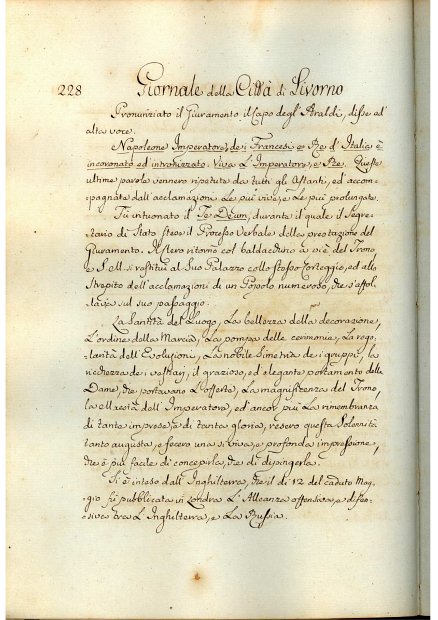 228 Giornale della Città di Livorno
Pronunziato il Giuramento il Capo degl'Araldi, disse ad
alta voce.
Napoleone Imperatore de i Francesi e Re d'Italia è
incoronato ed intronizzato. Viva L'Imperatore, e Re. Queste
ultime parole vennero ripetute da tutti gli Astanti, ed accom-
pagnate dall'acclamazioni Le più vive, e Le più prolungate.
Fu intuonato il Te Deum, durante il quale il Segre-
tario di Stato stese il Processo Verbale della prestazione del
Giuramento. Il Clero ritornò col baldacchino a piè del Trono
e S.M. si restituì al Suo Palazzo collo stesso Corteggio, ed allo
Strepito dell'acclamazioni di un Popolo numeroso, che s'affol-
lava sul suo passaggio.
La Santità del Luogo, La bellezza della decorazione,
L'ordine della Marcia, La pompa delle cerimonie, La rego-
larità dell'Evoluzioni, La nobile Simetria de i gruppi, la
ricchezza de i vestiarj, il grazioso, ed elegante portamento delle
Dame, che portavano L'offerte, La magnificenza del Trono,
la Maestà dell'Imperatore, ed ancor più La rimembranza
di tante imprese, e di tanta gloria, resero questa Solennità
tanto augusta, e fecero una sì viva, e profonda impressione,
che è più facile di concepirla, che di dipingerla.
Si è inteso dall'Inghilterra, che il dì 12 del caduto Mag-
gio fù pubblicata in Londra L'Alleanza offensiva, e difen-
siva tra L'Inghilterra, e La Russia.